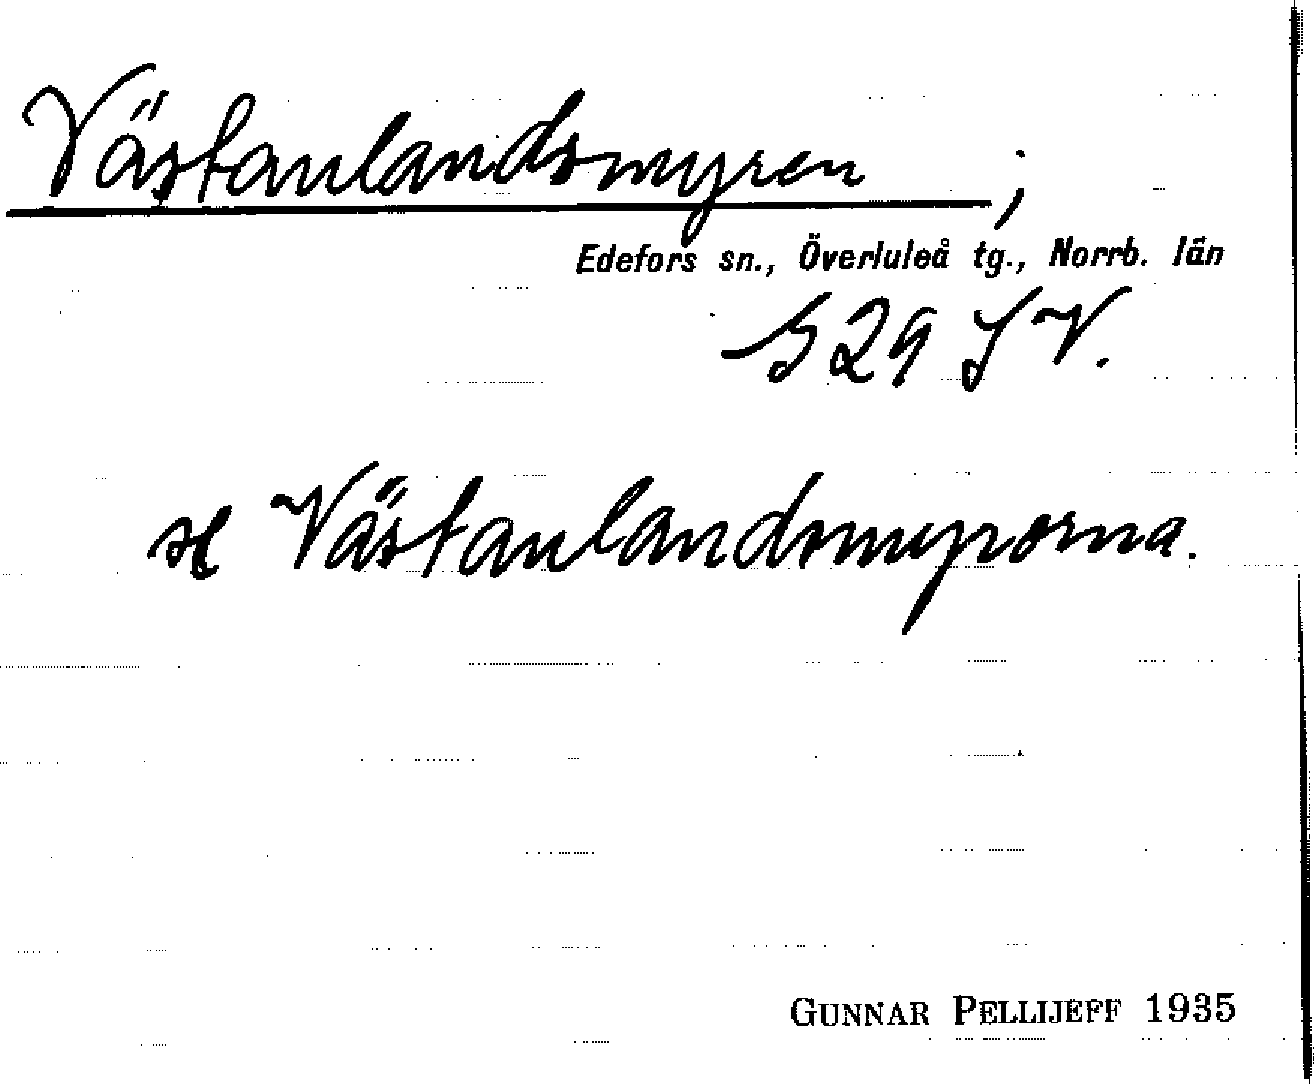 Västanlandsmyren ;
Edefors sn., Överluleå tg., Norrb. län
529 SV.
se Västanlandsmyrorna.
GUNNAR PELLIJEFF 1935